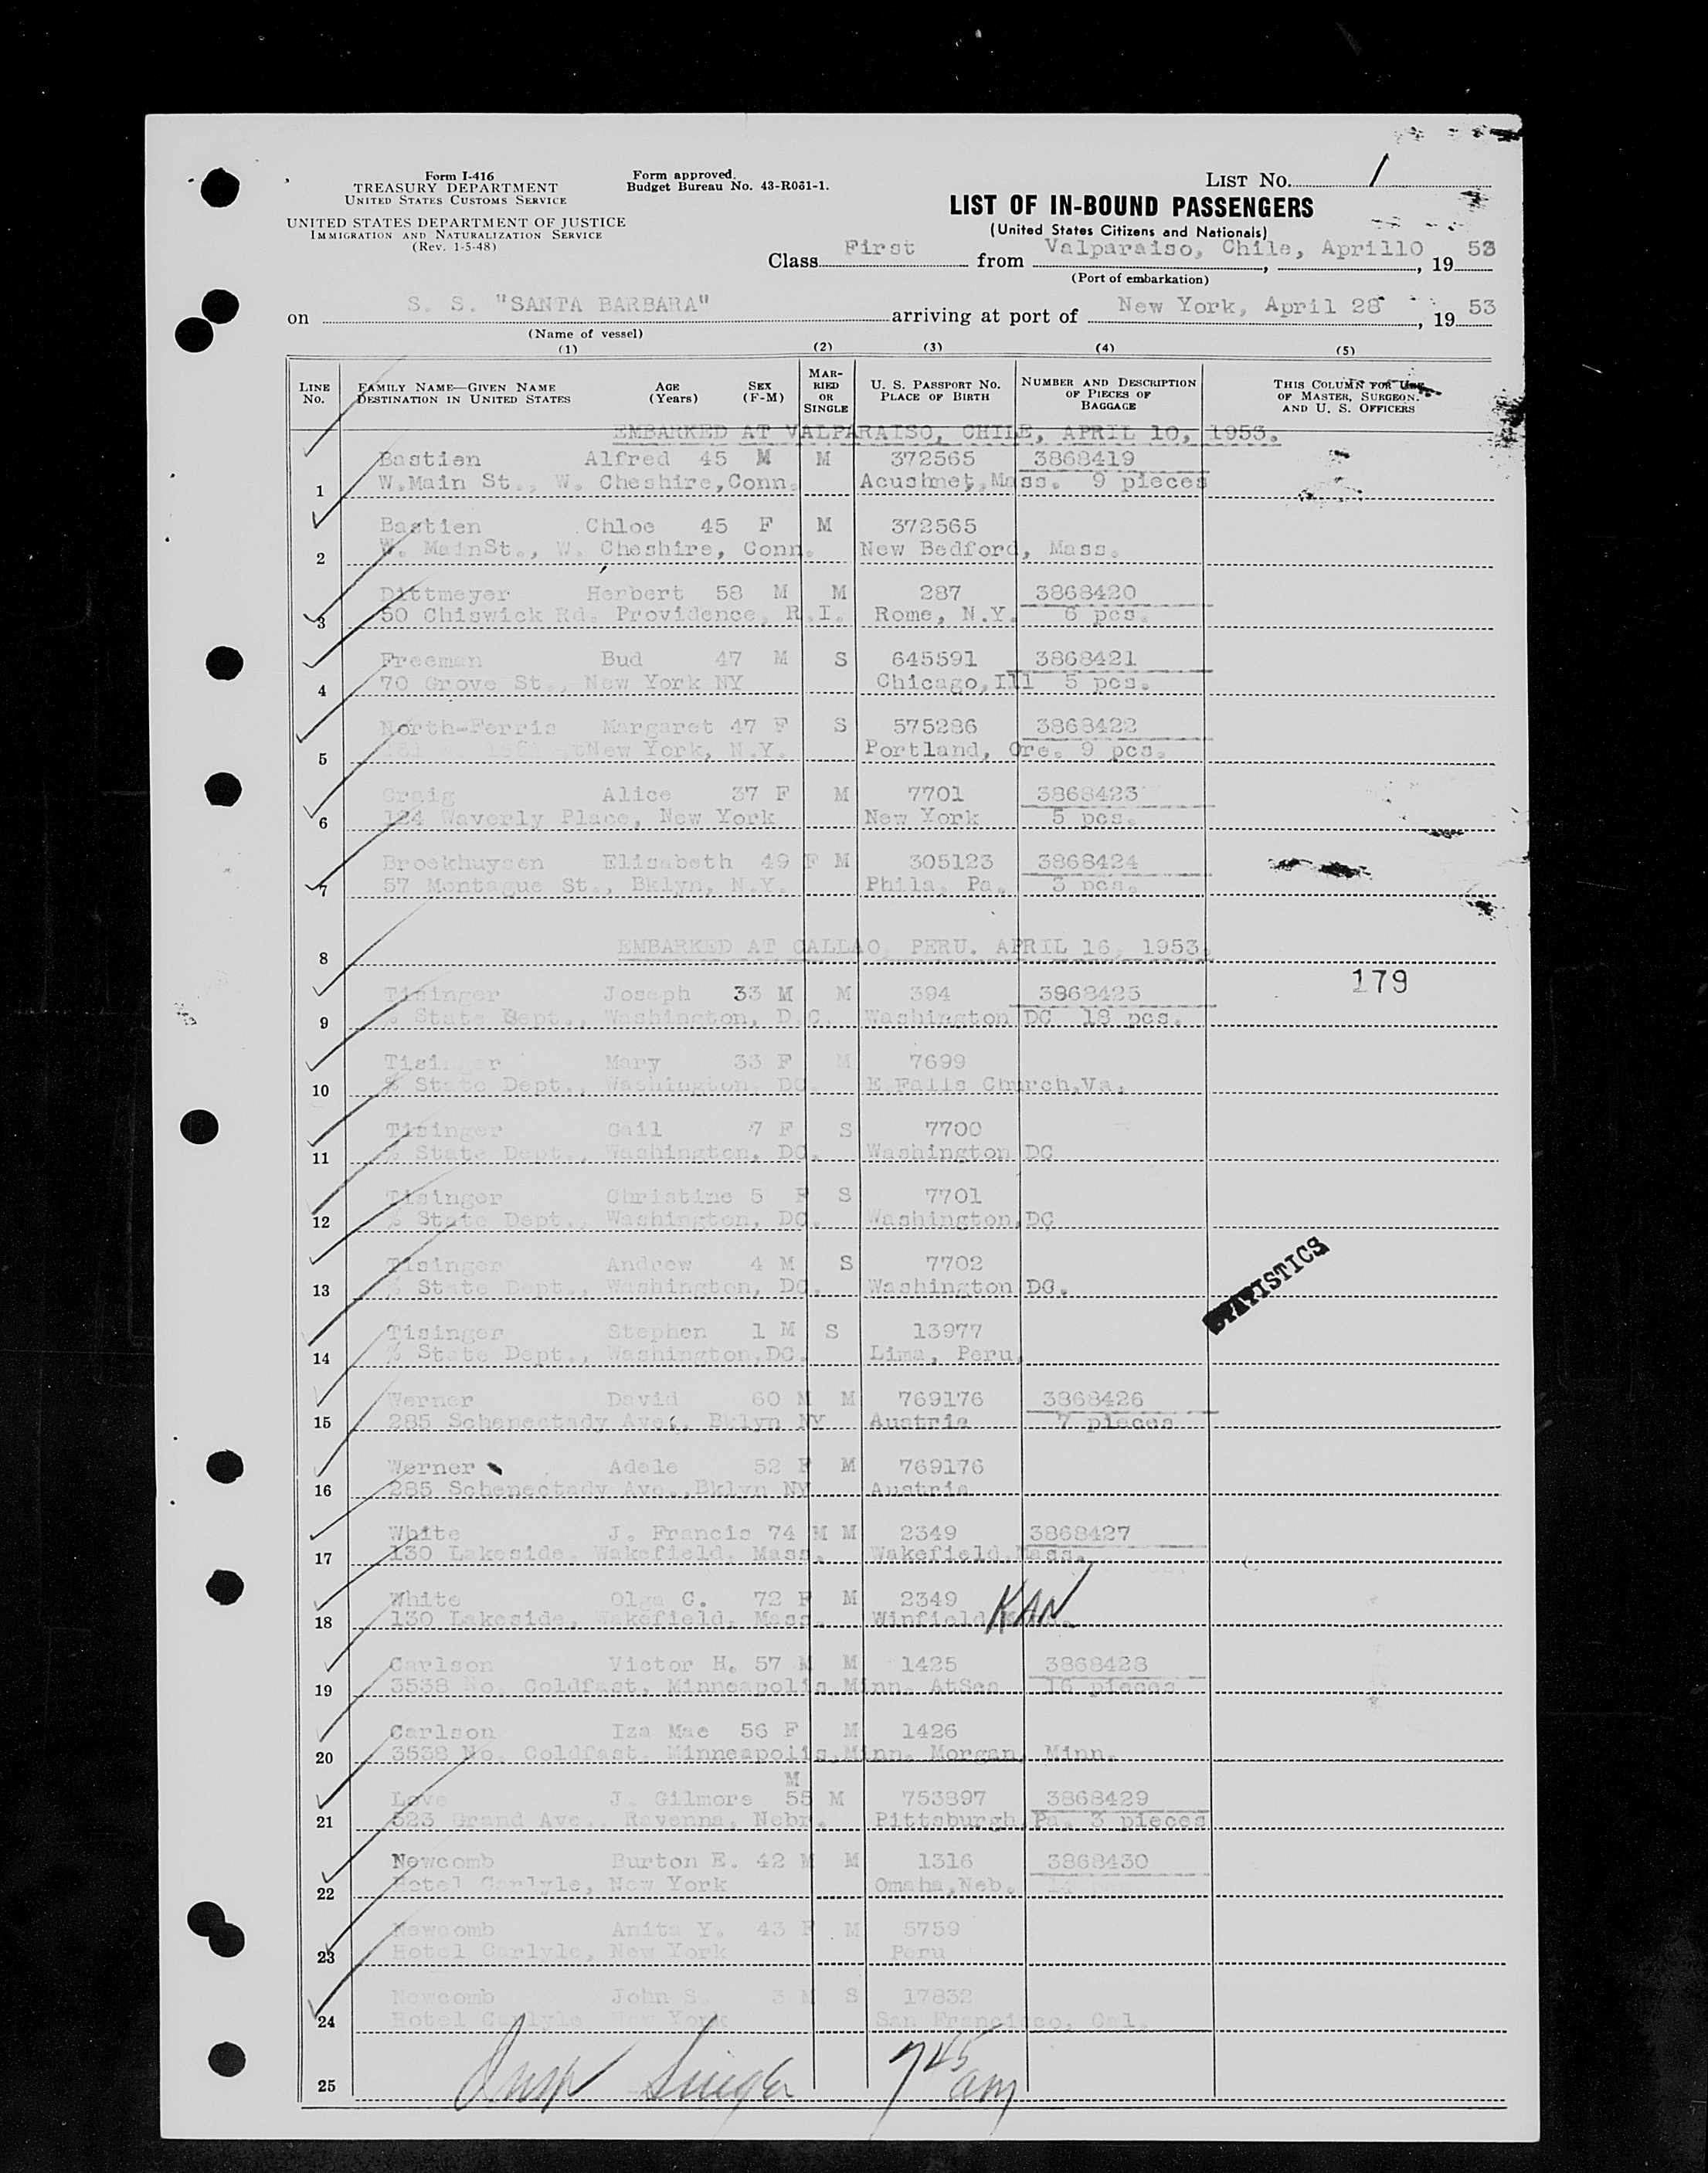 Form I-416
TREASURY DEPARTMENT
UNITED STATES CUSTOMS SERVICE
UNITED STATES DEPARTMENT OF JUSTICE
IMMIGRATION AND NATURALIZATION SERVICE
(Rev. 1-5-48)
Form approved.
Budget Bureau No. 43-R031-1.
LIST NO. 1
LIST OF IN-BOUND PASSENGERS
(United States Citizens and Nationals)
Class First from Valparaiso, Chile, April10, 1953
(Port of embarkation)
on S. S. "SANTA BARBARA" arriving at port of New York, April 28, 1953
(Name of vessel)
(1) (2) (3) (4) (5)
LINE NO. FAMILY NAME—GIVEN NAME DESTINATION IN UNITED STATES AGE (Years) SEX (F-M) MARRIED OR SINGLE U. S. PASSPORT NO. PLACE OF BIRTH NUMBER AND DESCRIPTION OF PIECES OF BAGGAGE THIS COLUMN FOR USE OF MASTER, SURGEON, AND U. S. OFFICERS
EMBARKED AT VALPARAISO, CHILE, APRIL 10, 1953.
Bastien Alfred 45 M M 372565 3868419
1 W.Main St., W. Cheshire,Conn. Acushnet,Mass. 9 pieces
Bastien Chloe 45 F M 372565
2 W. MainSt., W. Cheshire, Conn. New Bedford, Mass.
Dittmeyer Herbert 58 M M 287 3868420
3 50 Chiswick Rd. Providence, R.I. Rome, N.Y. 6 pcs.
Freeman Bud 47 M S 645591 3868421
4 70 Grove St., New York NY Chicago,Ill 5 pcs.
North-Ferris Margaret 47 F S 575286 3868422
5 New York, N.Y. Portland, Ore. 9 pcs.
Craig Alice 37 F M 7701 3868423
6 124 Waverly Place, New York New York 5 pcs.
Broekhuysen Elisabeth 49 F M 305123 3868424
7 57 Montague St., Bklyn, N.Y. Phila, Pa. 3 pcs.
8 EMBARKED AT CALLAO, PERU. APRIL 16, 1953.
179
Tisinger Joseph 33 M M 394 3868425
9 % State Dept., Washington, D.C. Washington DC 18 pcs.
Tisinger Mary 33 F M 7699
10 % State Dept., Washington, DC. E.Falls Church,Va.
Tisinger Gail 7 F S 7700
11 % State Dept., Washington, DC. Washington DC
Tisinger Christine 5 F S 7701
12 % State Dept., Washington, DC. Washington,DC
Tisinger Andrew 4 M S 7702
13 % State Dept., Washington, DC. Washington DC.
STATISTICS
Tisinger Stephen 1 M S 13977
14 % State Dept., Washington,DC. Lima, Peru.
Werner David 60 M M 769176 3868426
15 285 Schenectady Ave., Bklyn NY Austria 7 pieces
Werner Adele 52 F M 769176
16 285 Schenectady Ave.,Bklyn NY Austria
White J. Francis 74 M M 2349 3868427
17 130 Lakeside, Wakefield, Mass. Wakefield,Mass.
White Olga C. 72 F M 2349
18 130 Lakeside, Wakefield, Mass. Winfield KAN
Carlson Victor H. 57 M M 1425 3868428
19 3538 No. Coldfast, Minneapolis,Minn. AtSea 16 pieces
Carlson Iza Mae 56 F M 1426
20 3538 No. Coldfast, Minneapolis,Minn. Morgan, Minn.
M
Love J. Gilmore 55 M 753897 3868429
21 523 Grand Ave., Ravenna, Nebr. Pittsburgh,Pa. 3 pieces
Newcomb Burton E. 42 M M 1316 3868430
22 Hotel Carlyle, New York Omaha,Neb. 14
Newcomb Anita Y. 43 F M 5759
23 Hotel Carlyle, New York Peru
Newcomb John S. 3 M S 17832
24 Hotel Carlyle New York San Francisco, Cal.
25 Insp Singer 7 45 am